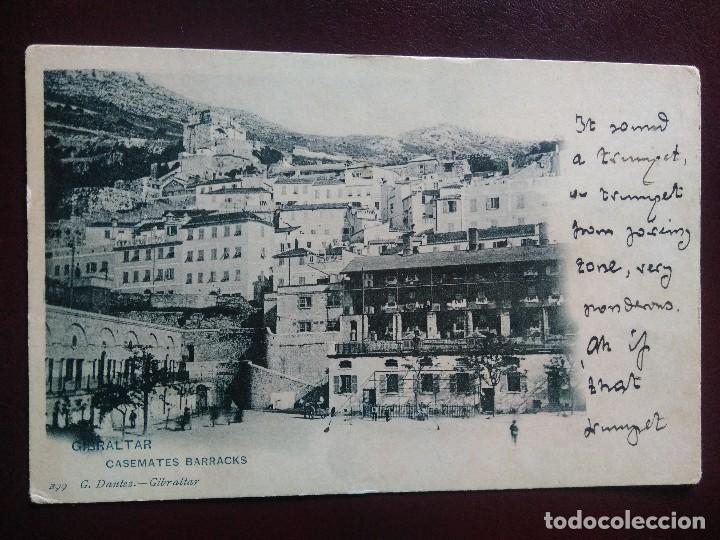 It sound
a trumpet,
trumpet
from
tone, very
ponderous.
Oh if
that
trumpet
GIBRALTAR
CASEMATES BARRACKS
299 G. Dantez.—Gibraltar
todocoleccion.net